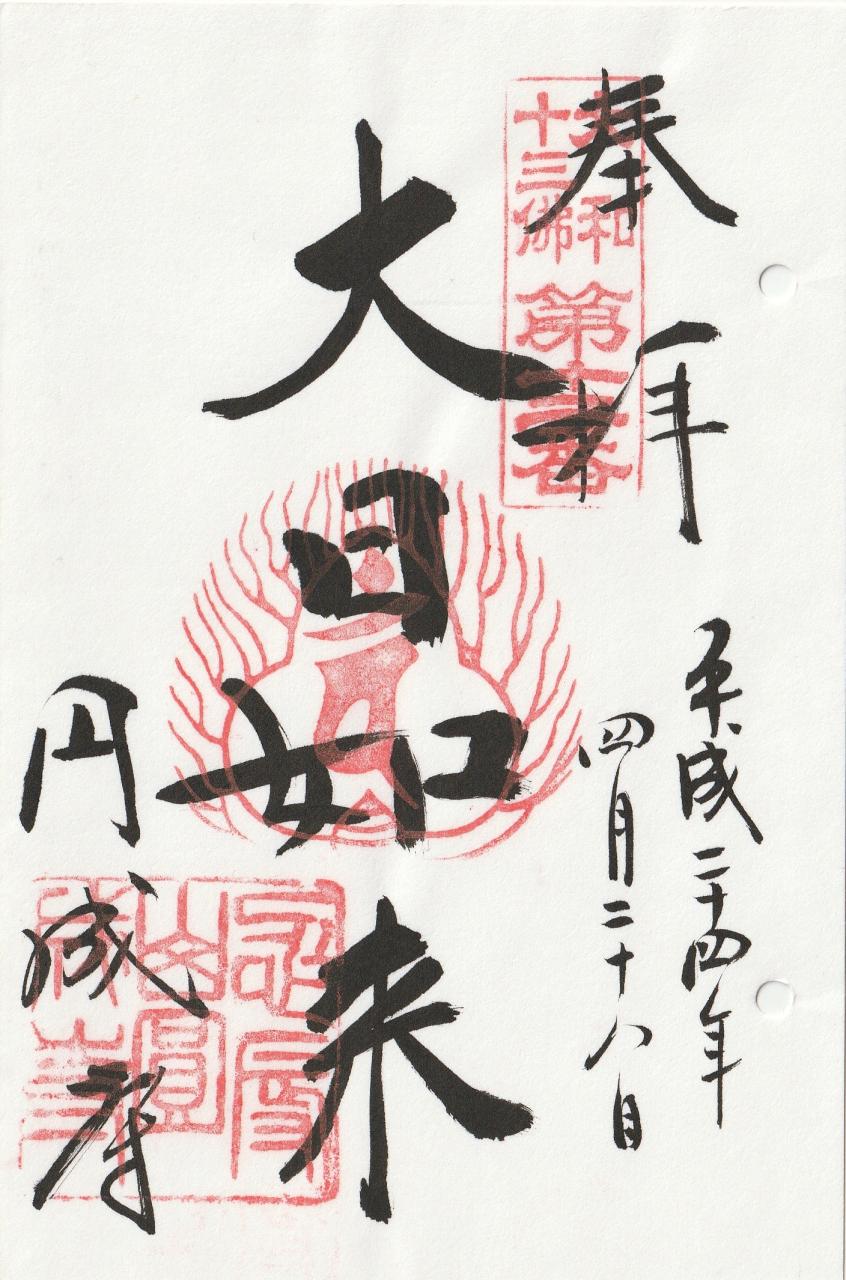 奉拝
大和
十三佛
第十二番
平成二十四年
四月二十八日
大日如来
円成寺
忍辱
山圓
成寺